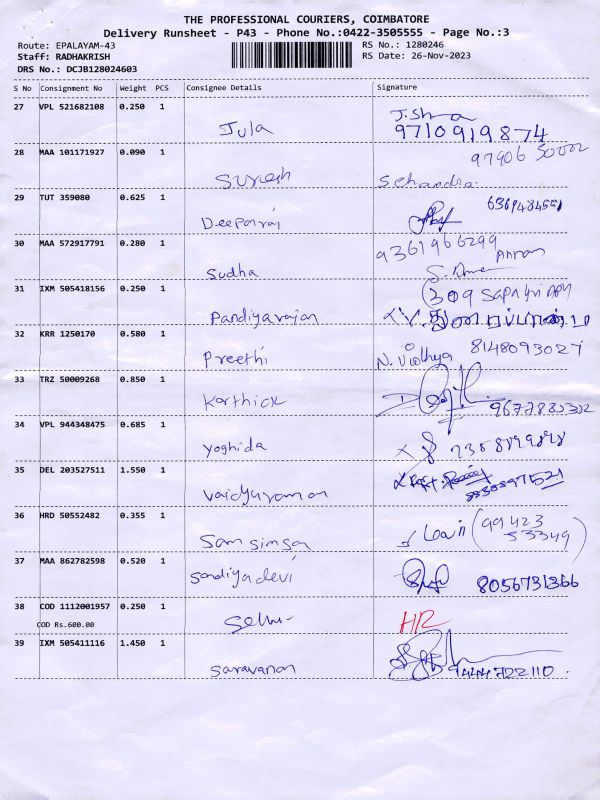 THE PROFESSIONAL COURIERS, COIMBATORE
Delivery Runsheet - P43 - Phone No.:0422-3505555 - Page No.:3
Route: EPALAYAM-43 RS No.: 1280246
Staff: RADHAKRISH RS Date: 26-Nov-2023
DRS No.: DCJB128024603
S No Consignment No Weight PCS Consignee Details Signature
27 VPL 521682108 0.250 1 Jula
9710919874
28 MAA 101171927 0.090 1 Suresh Schandra
29 TUT 359080 0.625 1 Deeparaj
30 MAA 572917791 0.280 1 Sudha 9361966299
31 IXM 505418156 0.250 1 Pandiyarajan (309
32 KRR 1250170 0.580 1 Preethi N. Vidhya 8148093027
33 TRZ 50009268 0.850 1 Karthick
34 VPL 944348475 0.685 1 Yoghida
35 DEL 203527511 1.550 1 Vaidyaraman
36 HRD 50552482 0.355 1 Samsimson (99423
53349)
37 MAA 862782598 0.520 1 Sandiyadevi 8056731366
38 COD 1112001957 0.250 1 HR
COD Rs.600.00
39 IXM 505411116 1.450 1 Saravanan 9444722110